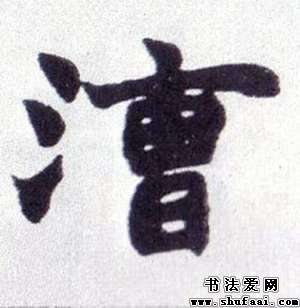 漕
书法爱网
www.shufaai.com